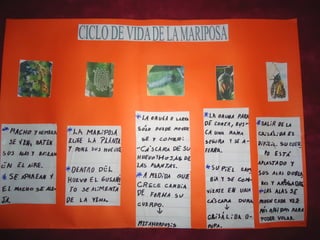 CICLO DE VIDA DE LA MARIPOSA
* MACHO Y HEMBRA
SE VEN, BATEN
SUS ALAS Y BAILAN
EN EL AIRE.
* SE APAREAN Y
EL MACHO SE ALE-
JA.
* LA MARIPOSA
ELIJE LA PLANTA
Y PONE SUS HUEVOS
* DENTRO DEL
HUEVO EL GUSANI-
TO SE ALIMENTA
DE LA YEMA.
* LA ORUGA O LARVA
SÓLO PUEDE MOVER
SE Y COMER:
-CÁSCARA DE SU
HUEVO Y HOJAS DE
LAS PLANTAS.
* A MEDIDA QUE
CRECE CAMBIA
DE FORMA SU
CUERPO.
↓
METAMORFOSIS
* LA ORUGA PARA
DE COMER, BUS-
CA UNA RAMA
SEGURA Y SE A-
FERRA.
* SU PIEL CAM
BIA Y SE CON-
VIERTE EN UNA
CÁSCARA DURA
↓
CRISÁLIDA O
PUPA.
* SALIR DE LA
CRISÁLIDA ES
DIFÍCIL. SU CUER
PO ESTÁ
APLASTADO Y
SUS ALAS
SUS ALAS SE
MUEVEN CADA VEZ
PARA
PODER VOLAR.